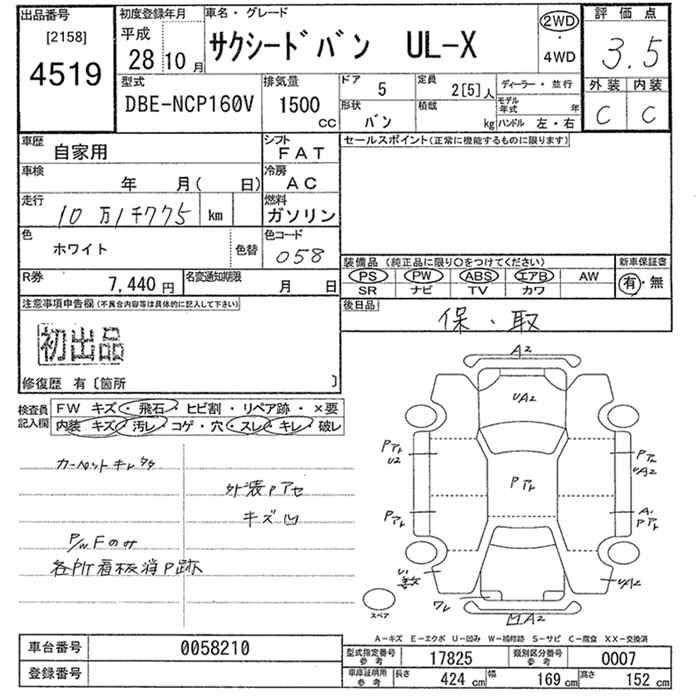 出品番号
[2158]
4519
初度登録年月
平成
28 10 月
車名・グレード
サクシードバン UL-X
2WD
・
4WD
評価点
3.5
外装 内装
C C
型式
DBE-NCP160V
排気量
1500
CC
ドア
5
定員
2[5]人
ディーラー・並行
形状
バン
積載
kg
モデル年式 年
ハンドル 左・右
車歴
自家用
シフト
FAT
車検
年 月( 日)
冷房
AC
走行
10万1千775 km
燃料
ガソリン
色
ホワイト
色替
色コード
058
R券
7,440 円
名変通知期限
月 日
セールスポイント(正常に機能するものに限ります)
装備品 (純正品に限り○をつけてください)
新車保証書
PS PW ABS エアB AW
有・無
SR ナビ TV カワ
後日品
保・取
注意事項申告欄 (不具合内容等は具体的に記入して下さい)
初出品
修復歴 有〔箇所 〕
検査員記入欄
FW キズ・飛石・ヒビ割・リペア跡・×要
内装 キズ・汚レ・コゲ・穴・スレ・キレ・破レ
カーペットキレ
外装Pアセ
キズ凹
P/W Fのみ
各所看板消P跡
A2
UA2
Pアト
U2
Pアト
UA2
Pアト
Pアト
A1
Pアト
UA2
ワレ
A2
スペア
A-キズ E-エクボ U-凹み W-補修跡 S-サビ C-腐食 XX-交換済
車台番号
0058210
登録番号
型式指定番号
参考
17825
類別区分番号
参考
0007
車庫証明用
参考
長さ
424 cm
幅
169 cm
高さ
152 cm